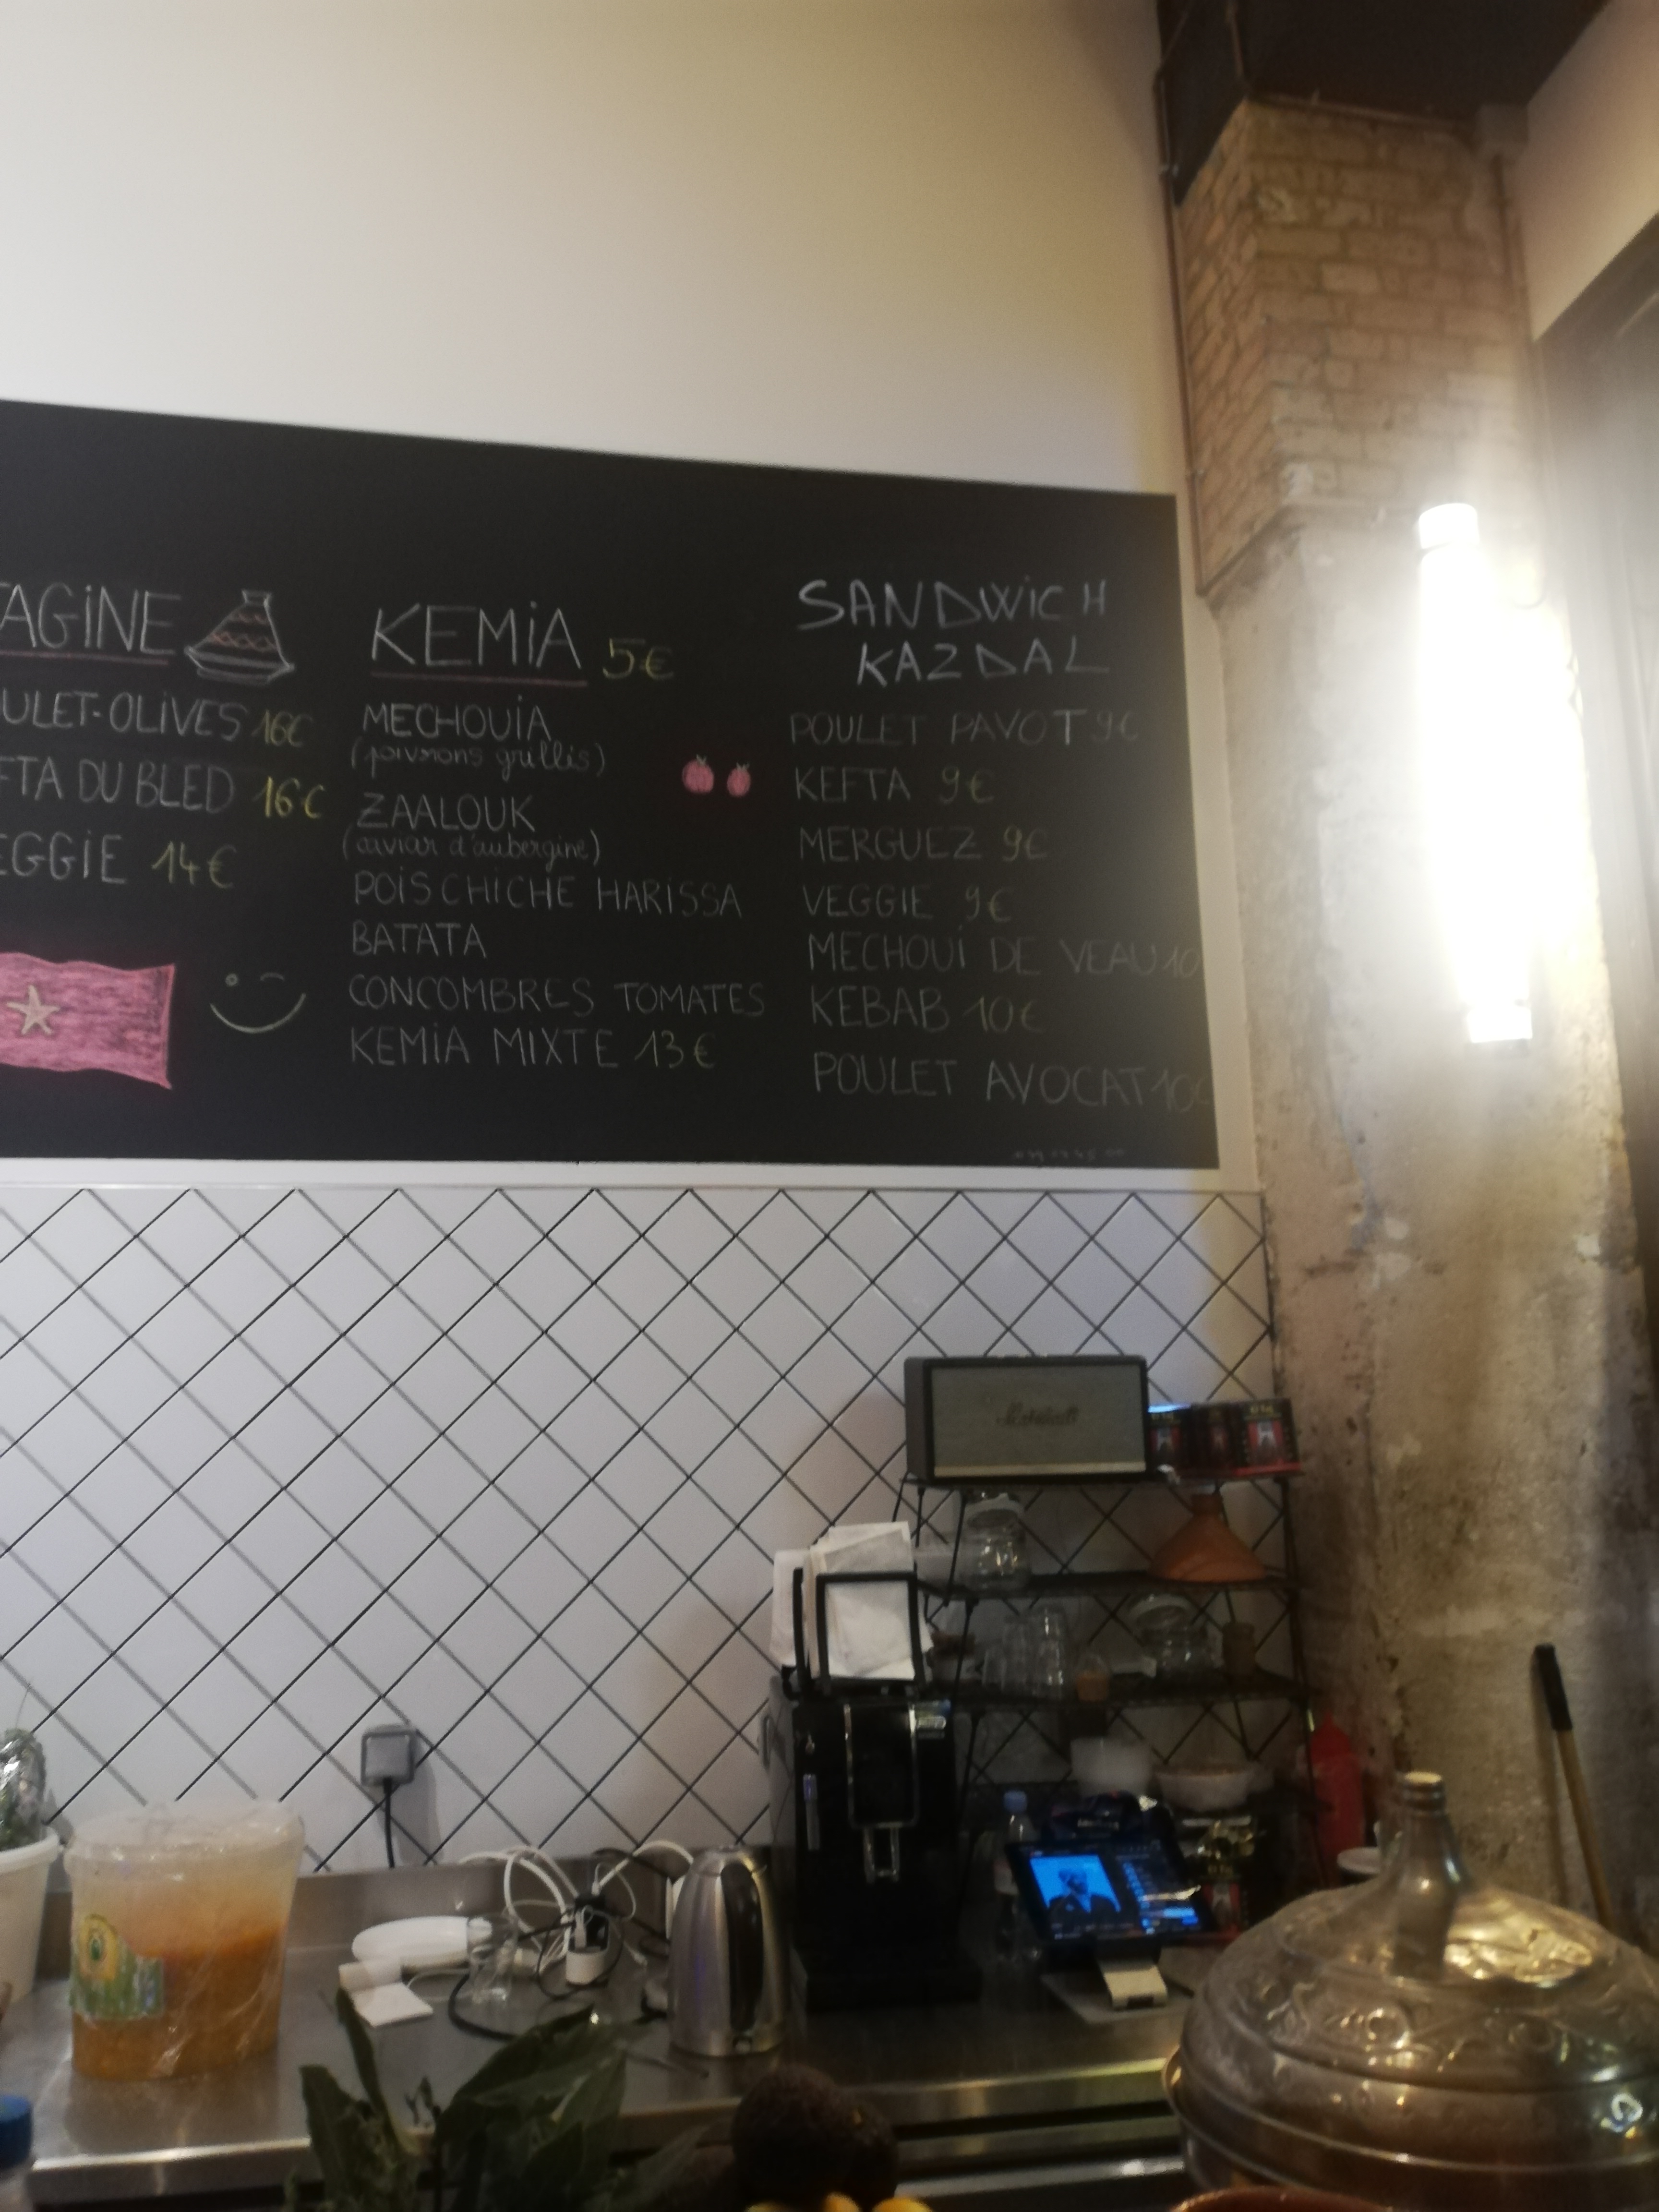 TAGINE
OULET-OLIVES 16€
FTA DU BLED 16€
EGGIE 14€
KEMIA 5€
MECHOUIA
(poivrons grillés)
ZAALOUK
(caviar d'aubergine)
POIS CHICHE HARISSA
BATATA
CONCOMBRES TOMATES
KEMIA MIXTE 13€
SANDWICH
KAZDAL
POULET PAVOT 9€
KEFTA 9€
MERGUEZ 9€
VEGGIE 9€
MECHOUI DE VEAU 10
KEBAB 10€
POULET AVOCAT 10€
Marshall